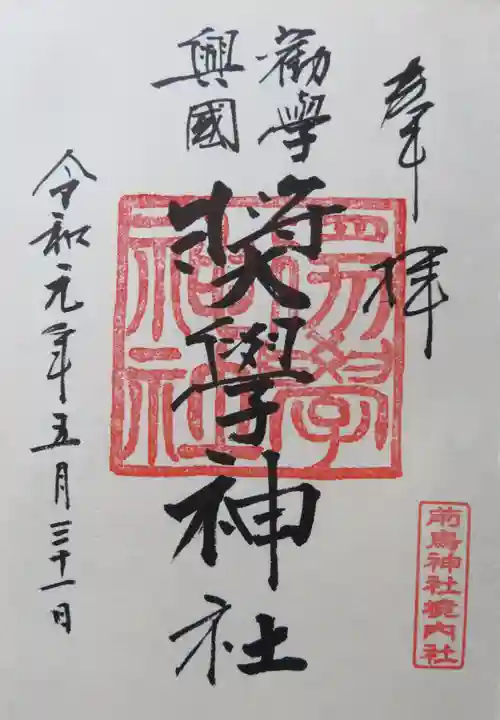 奉拝
勸學
興國
奨學神社
令和元年五月三十一日
前鳥神社境内社